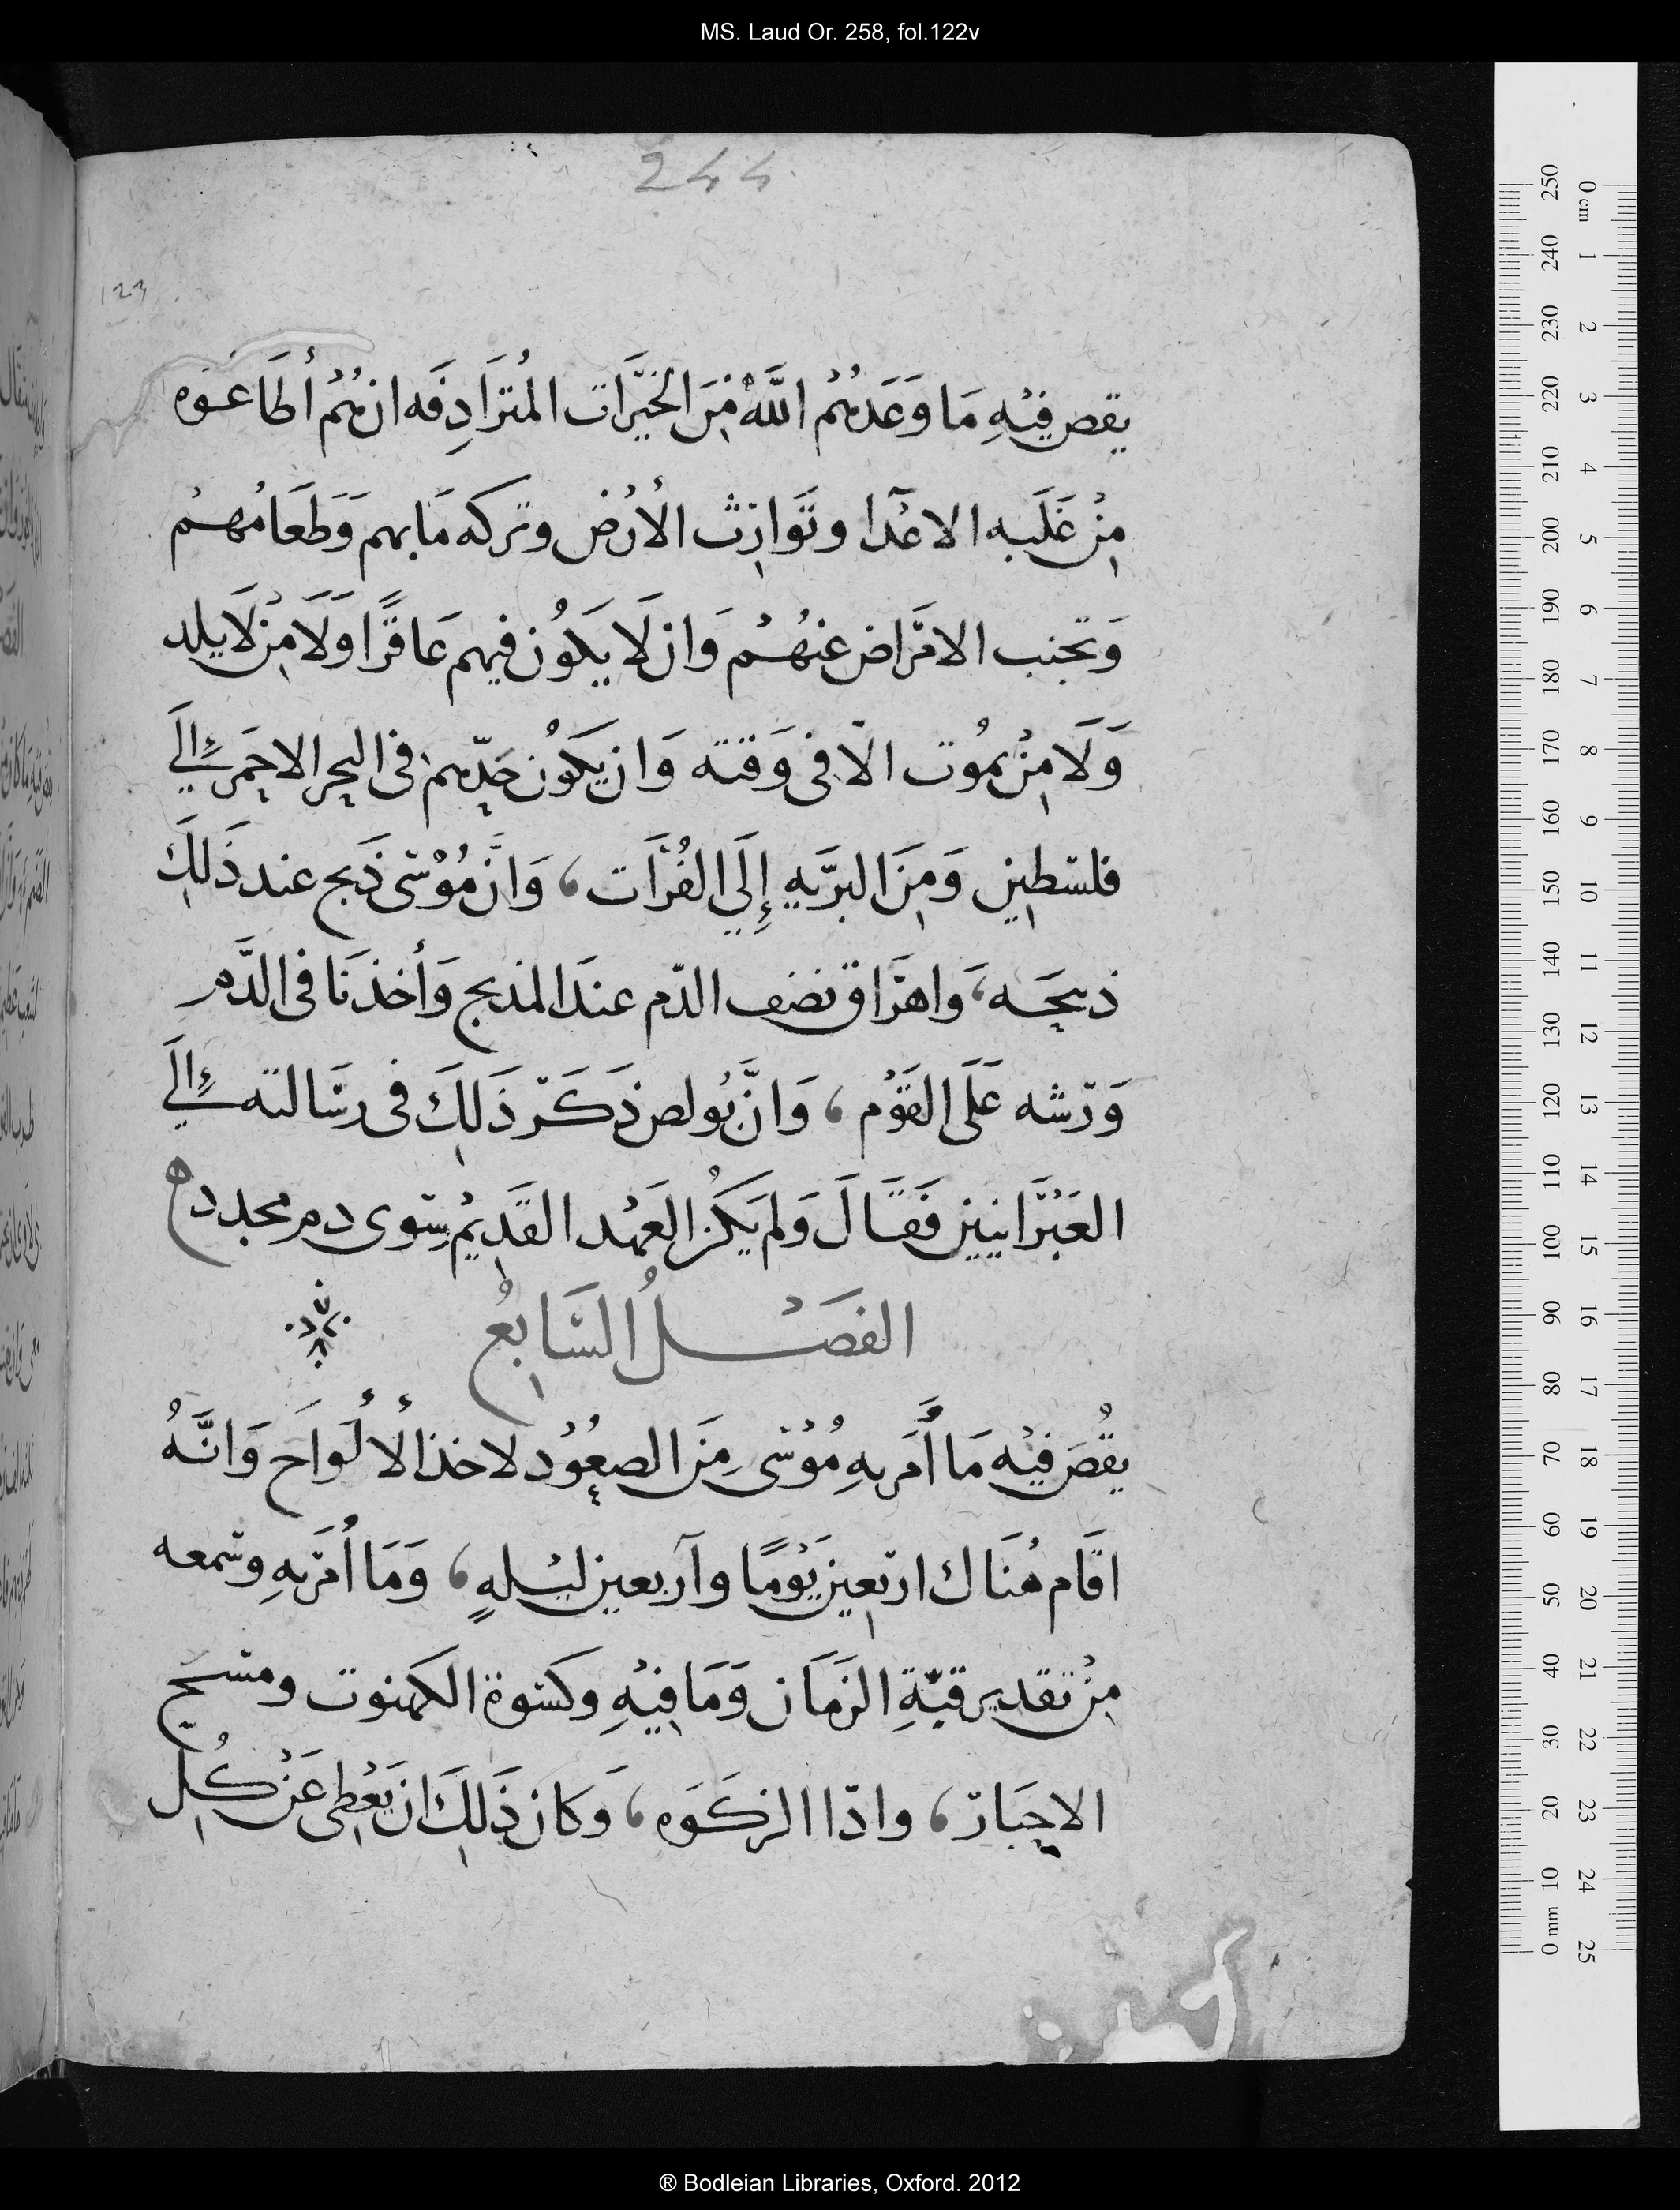 MS. Laud Or. 258, fol.122v
244
123
يقص فيْهِ مَا وَعَدهُمْ اللَّهُ مِنَ الخيَرَات المُترَادِفَه ان هُمْ أطَاعَوه
مِنْ غَلَبه الاعْدَا وتَوَارث الأرْض وتركه مَا بهم وَطَعَامُهمْ
وَتجنب الامرَاض عنهُمْ وَان لَا يَكُون فيهم عَاقرًا وَلَا مِنْ لَا يلد
وَلَا مِنْ يمُوت الّا فى وَقته وَان يَكُون حَدّهم فى البحر الاحمَر إلَي
فلسطين وَمِنَ البرَّيهِ إِلَي الفُرَات، وَانَّ مُوْسَى ذَبح عند ذَلِكَ
ذبيحَه، وَاهرَاق نصف الدّم عندَ المذبح وَأخذنَا فى الدَّم
وَرشه عَلَى القَوْم، وَانَّ بُولص ذَكَرَ ذَلِكَ فى رسَالته إلَي
العَبْرَانيين فَقَالَ وَلم يَكُن العَهْد القَدِيمُ سِوى دم مجدد ه
الفصْلُ السَّابعُ
يقُصَ فيْه مَا أُمَر بهِ مُوْسَى مِنَ الصعُوْد لاخذ الألْوَاح وَانَّهُ
اقَام هُنَاك اربَعِين يَوْمًا وآربعين ليْلهٍ، وَمَا أُمرَ بهِ وسمعه
مِنْ تقدير قبّةِ الزَمَان وَمَا فيْهِ وكسوة الكهنوت ومسح
الاحبَار، وادَا الزكَوَه، وَكان ذَلِكَ ان يَعْطى عَنْ كُلِ
250 240 230 220 210 200 190 180 170 160 150 140 130 120 110 100 90 80 70 60 50 40 30 20 10 0 mm
0 cm 1 2 3 4 5 6 7 8 9 10 11 12 13 14 15 16 17 18 19 20 21 22 23 24 25
® Bodleian Libraries, Oxford. 2012